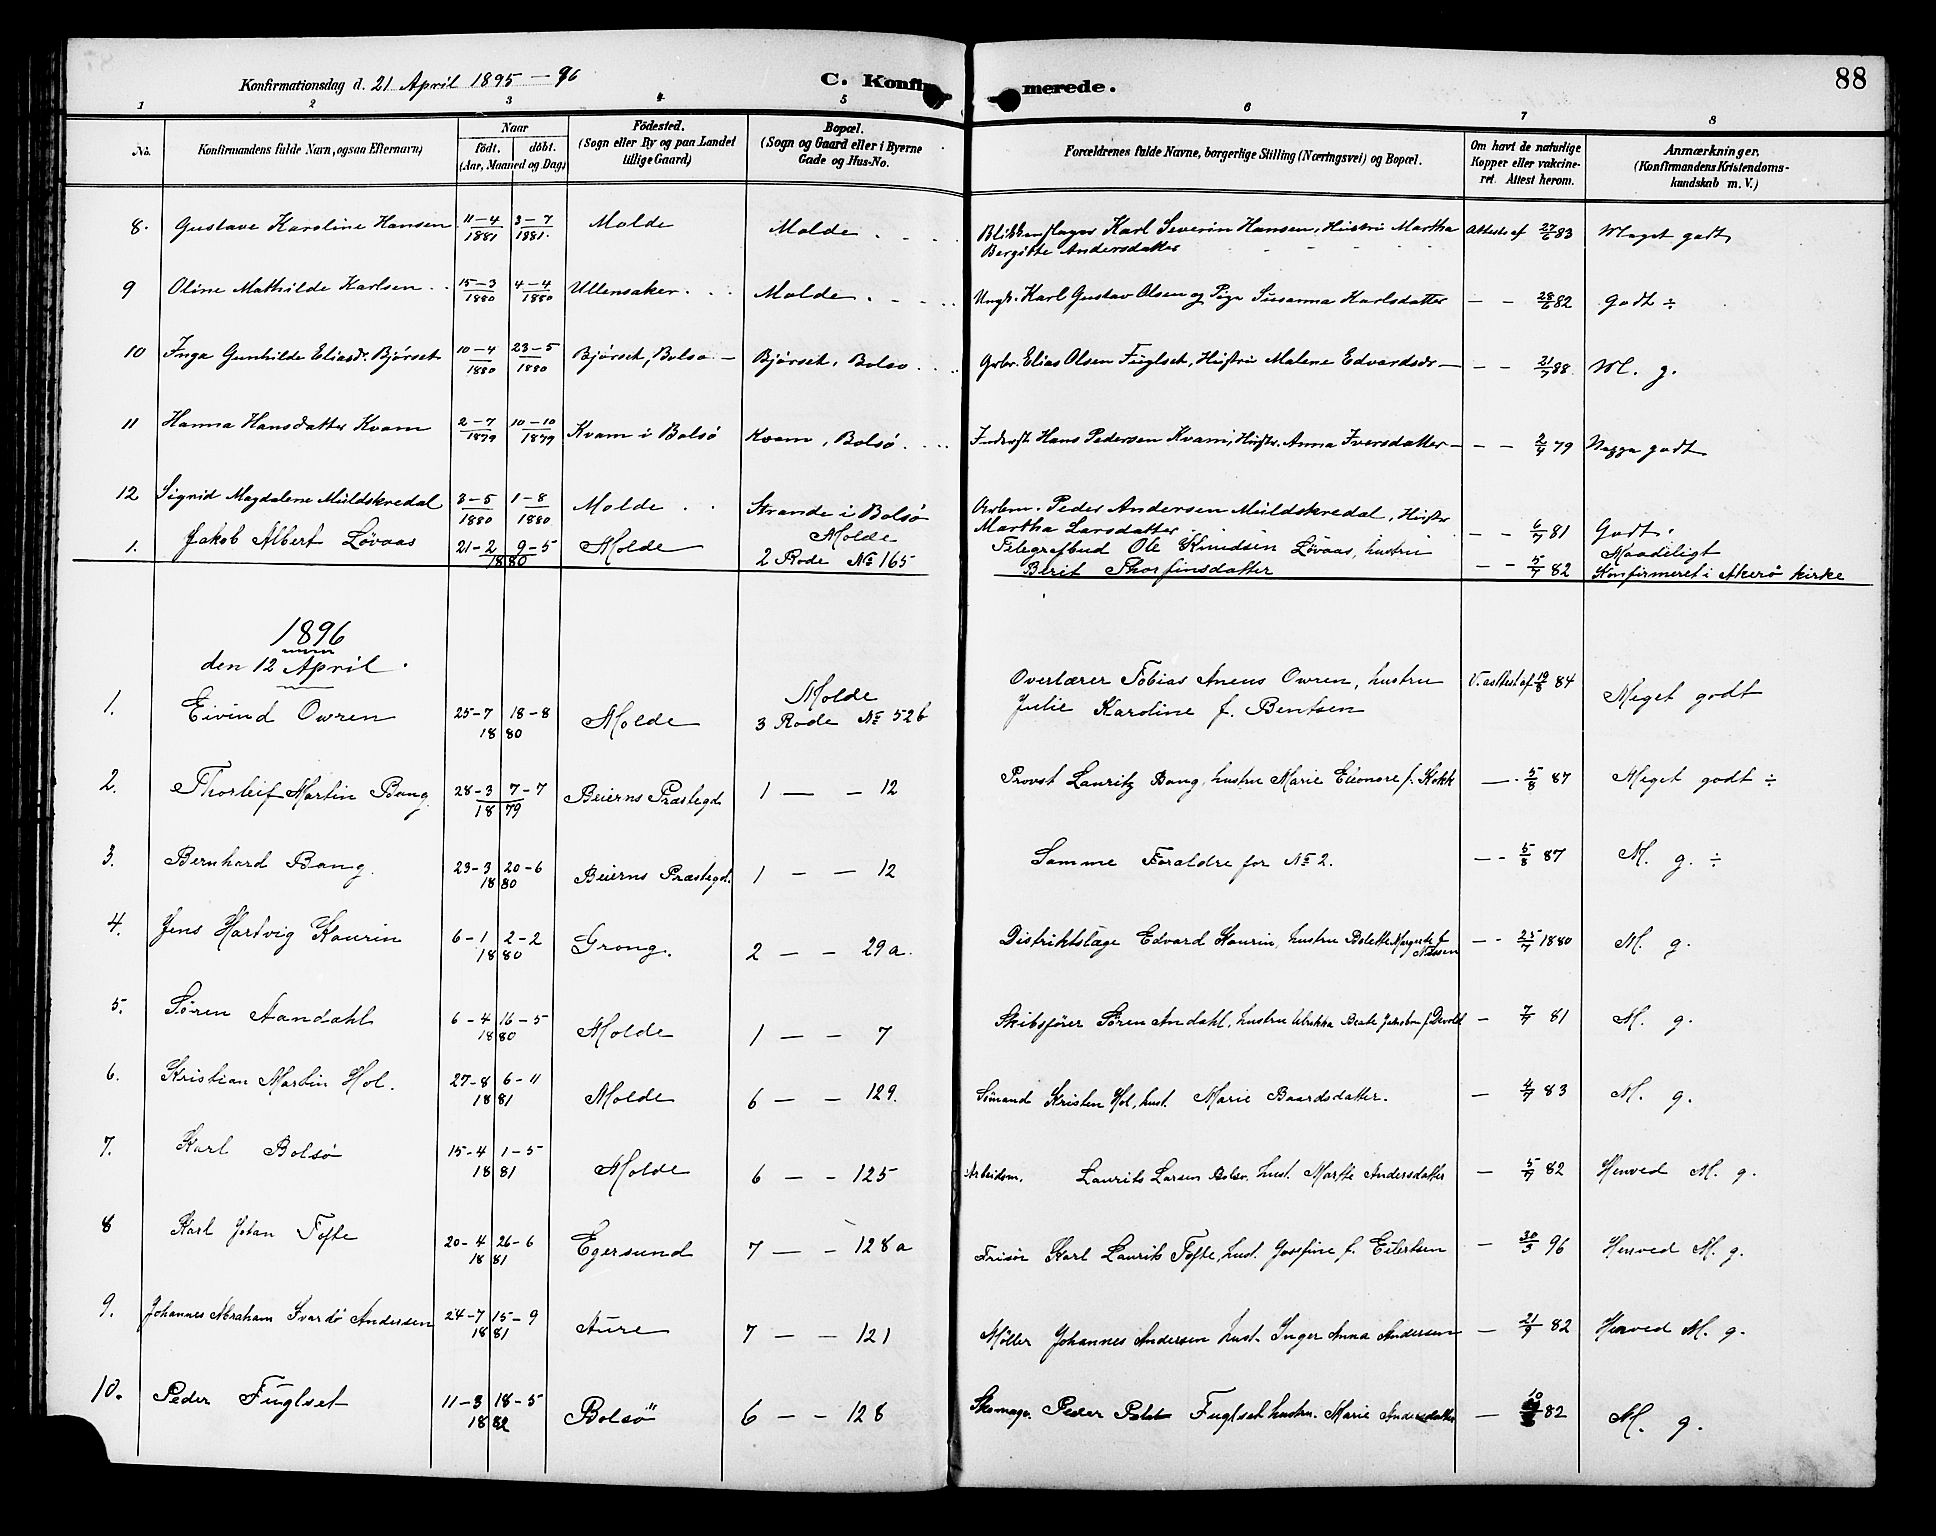 88
Konfirmationsdag d. 21 April 1895 — 96
C. Konfirmerede.
1 2 3 4 5 6 7 8
No. Konfirmandens fulde Navn, ogsaa Efternavn) Naar födt. döbt. (Aar, Maaned og Dag) Födested. (Sogn eller By og paa Landet tillige Gaard) Bopæl. (Sogn og Gaard eller i Byerne Gade og Hus-No. Forældrenes fulde Navne, borgerlige Stilling (Næringsvei) og Bopæl. Om havt de naturlige Kopper eller vakcineret. Attest herom. Anmærkninger. (Konfirmandens Kristendomskundskab m. V.)
8. Gustave Karoline Hansen 11-4 1881 3-7 1881. Molde Molde Blikkenslager Karl Severin Hansen, Hustru Martha Bergitte Andersdatter Attest af 27/6 83 Meget godt
9 Oline Mathilde Karlsen 15-3 1880 4-4 1880 Ullensaker Molde Ungk. Karl Gustav Olsen og Pige Susanna Karlsdatter — — 28/6 82 Godt ÷
10 Inga Gunhilde Eliasd. Bjørset 10-4 1880 23-5 1880 Bjørset, Bolsø Bjørset, Bolsø Gbr. Elias Olsen Fuglset, Hustru Malene Edvardsdr — — 21/7 88 M. g.
11 Hanna Hansdatter Kvam 2-7 1879 10-10 1879 Kvam i Bolsø Kvam, Bolsø Inderst Hans Pedersen Kvam, Hustr. Anna Iversdatter — — 2/9 79 Næzga godt
12 Sigrid Magdalene Muldskredal 3-5 1880 1-8 1880 Molde Strande i Bolsø Arbm. Peder Andersen Muldskredal, Hustru Martha Larsdatter — — 6/7 81 Godt
1. Jakob Albert Løvaas 21-2 9-5 1880 Molde Molde 2 Rode No 165 Telegrafbud Ole Knudsen Løvaas, hustru Berit Thorfinsdatter — — 5/7 82 Maadeligt Konfirmeret i Akerø kirke
1896
den 12 April.
1. Eivind Owren 25-7 18-8 1880 Molde Molde 3 Rode No 52b Overlærer Tobias Aneus Owren, hustru Julie Karoline f. Bentsen V. attest af 19/8 84 Meget godt
2. Thorleif Martin Bang. 28-3 7-7 1879 Beierns Præstegd 1 — — 12 Provst Lauritz Bang, hustru Marie Eleonore f. Kokk — 5/8 87 Meget godt ÷
3. Bernhard Bang. 23-3 20-6 1880 Beierns Præstegd. 1 — — 12 Samme Forældre for No 2. — - 5/8 87 M. g. ÷
4. Jens Hartvig Kaurin 6-1 2-2 1880 Grong. 2 — — 29a. Distriktslæge Edvard Kaurin, hustru Bolette Margrete f. Nissen — - 25/7 1880 M. g.
5. Søren Aandahl 6-4 16-5 1880 Molde 1 — — 7 Skibsfører Søren Andahl, hustru Ulrikka Beate Jakobn f. Devold — 7/7 81 M. g.
6. Kristian Martin Hol. 27-8 6-11 1881 Molde 6 — — 129. Sömand Kristen Hol, hust. Marie Baardsdatter. — 4/7 83 M. g.
7. Karl Bolsø 15-4 1-5 1881 Molde 6 — — 125 Arbeidsm. Laurits Larsen Bolsø. hust. Marthe Andersdatter — 5/7 82 Henved M. g.
8 Karl Johan Tofte 20-4 26-6 1881 Egersund 7 — — 128a Frisør Karl Laurits Tofte, hust. Josefine f. Eilertsen — 30/3 96 Henved M. g.
9. Johannes Abraham Svardø Andersen 24-7 15-9 1881 Aure 7 — — 121 Møller Johannes Andersen hust. Inger Anna Andersen — 21/9 82 Henved M. g.
10. Peder Fuglset 11-3 18-5 1882 Bolsö 6 — — 128 Skomager. Peder Fuglset hustru. Marie Andersdatter — 10 82 M. g.